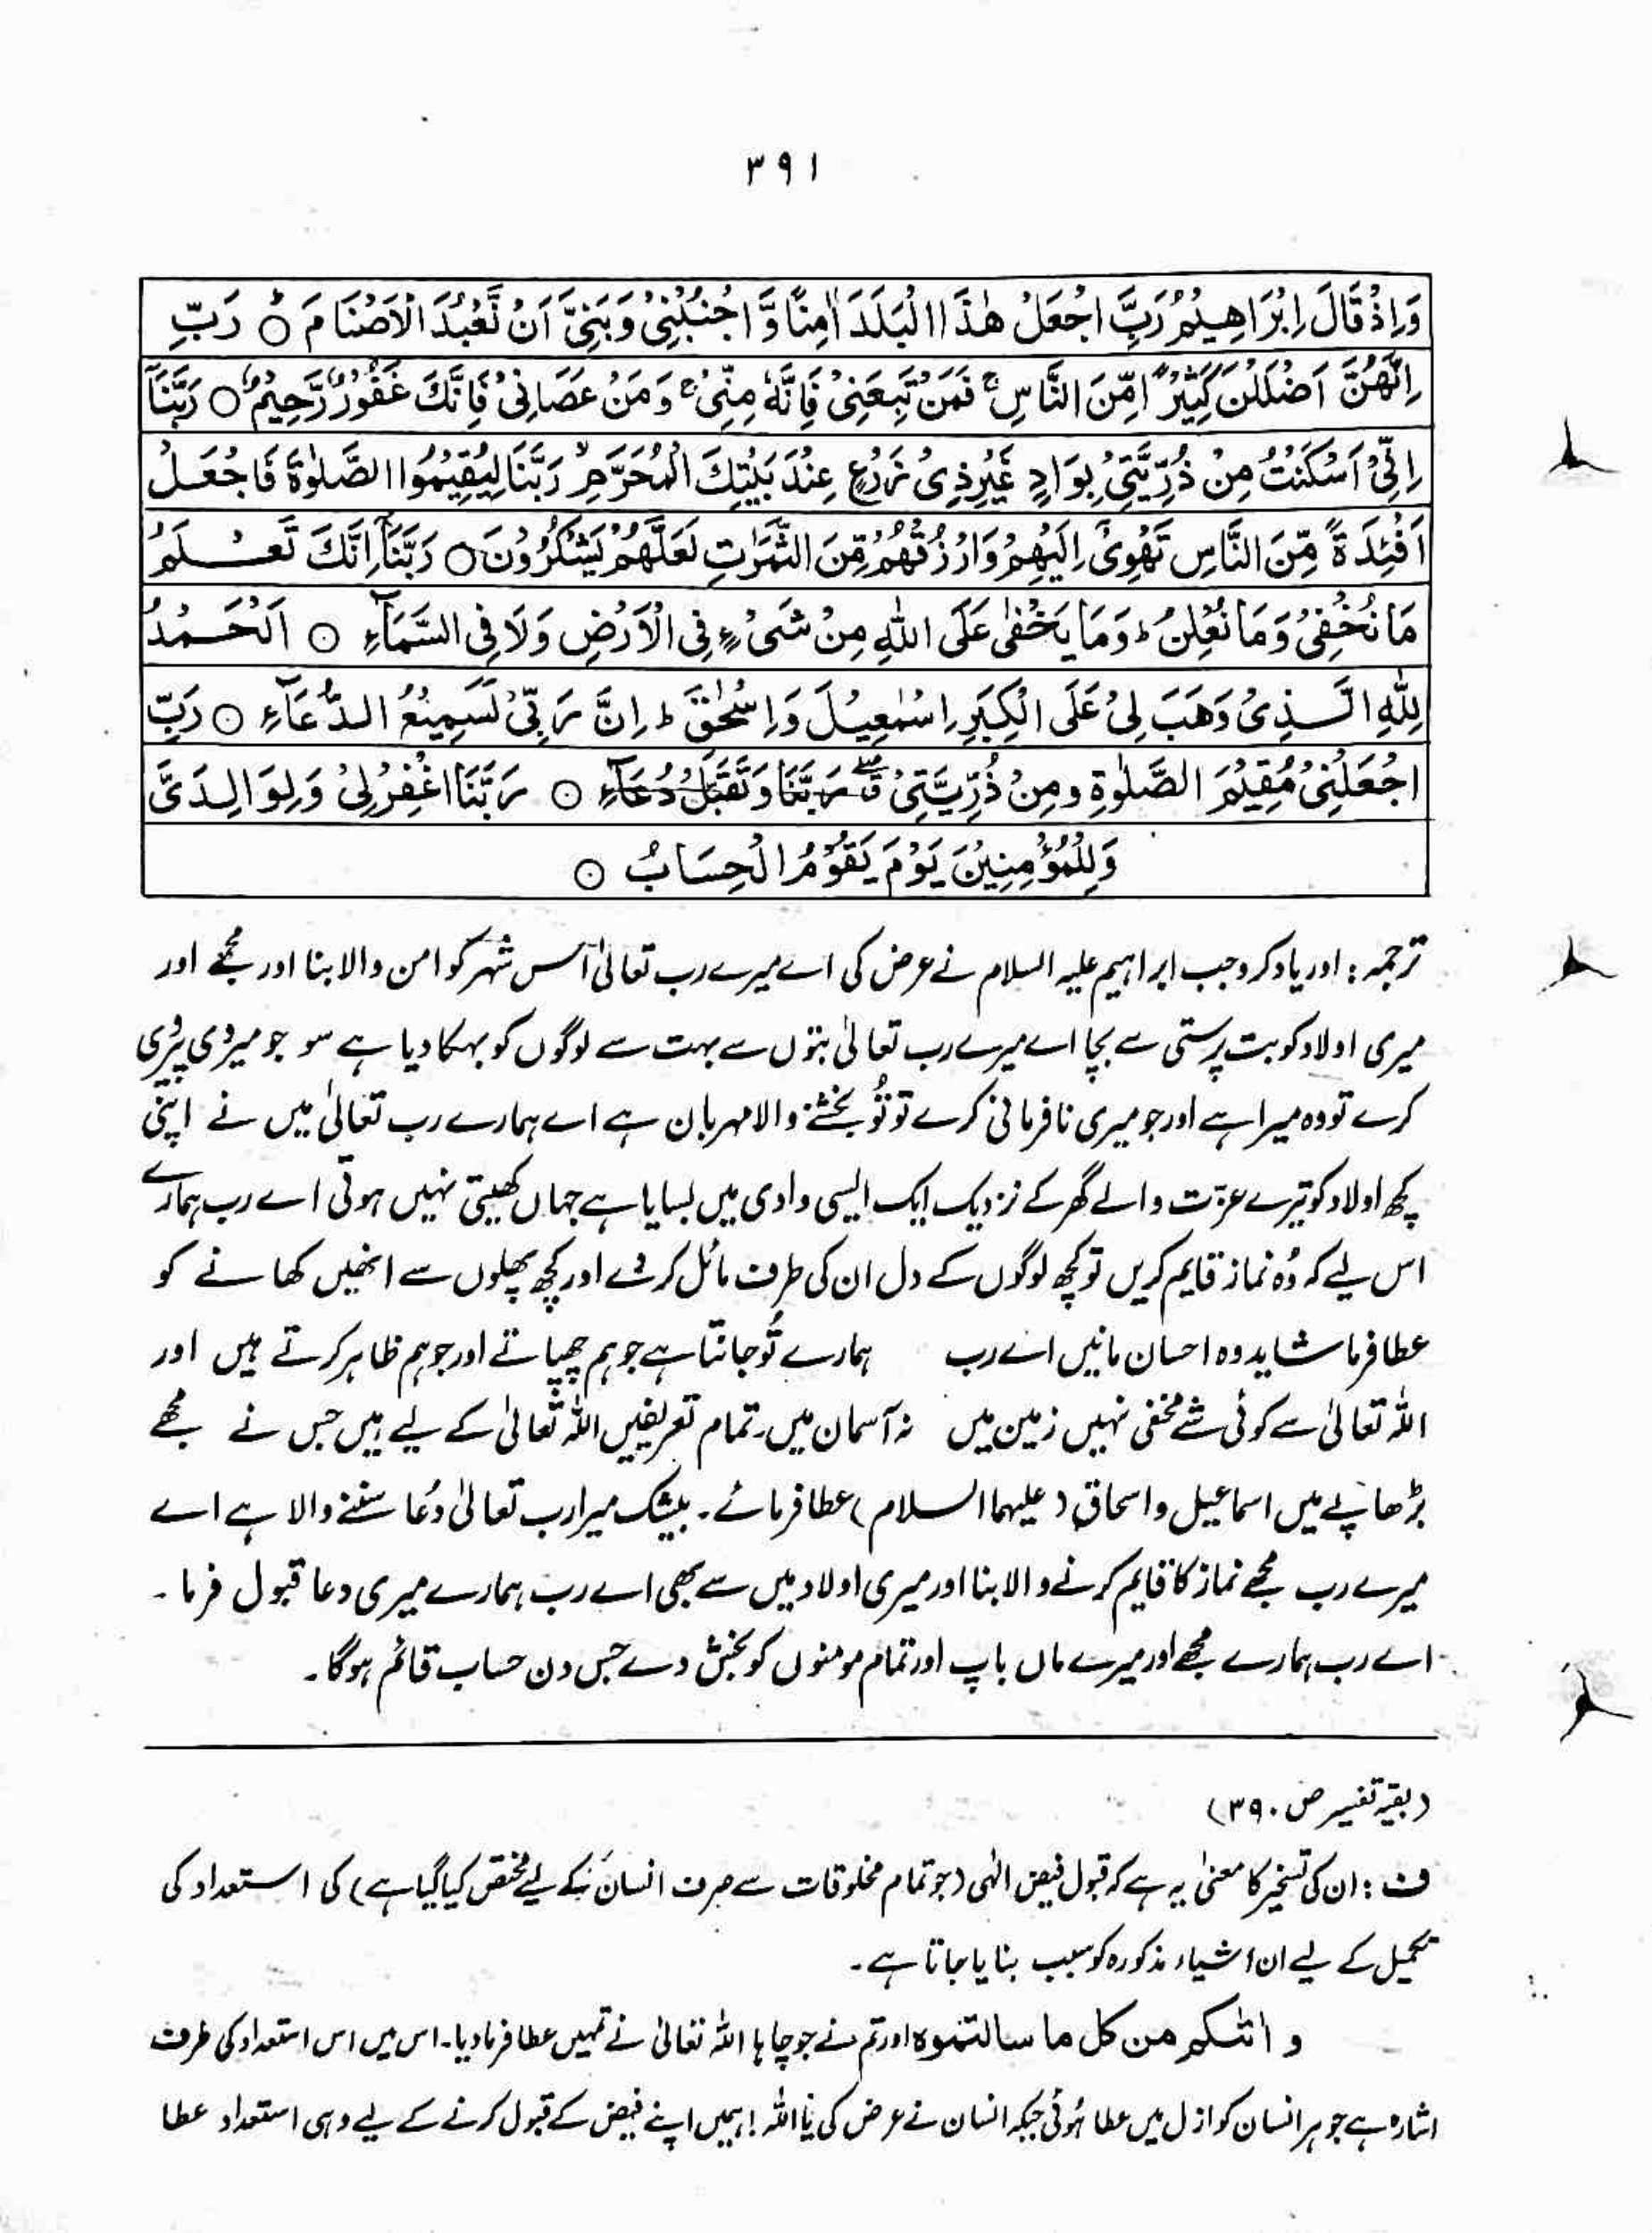 ۳۹۱
وَاِذْ قَالَ اِبْرَاهِيْمُ رَبِّ اجْعَلْ هٰذَا الْبَلَدَ اٰمِنًا وَّاجْنُبْنِيْ وَبَنِيَّ اَنْ نَّعْبُدَ الْاَصْنَامَ ○ رَبِّ
اِنَّهُنَّ اَضْلَلْنَ كَثِيْرًا مِّنَ النَّاسِ ۚ فَمَنْ تَبِعَنِيْ فَاِنَّهٗ مِنِّيْ ۚ وَمَنْ عَصَانِيْ فَاِنَّكَ غَفُوْرٌ رَّحِيْمٌ ○ رَبَّنَآ
اِنِّيْٓ اَسْكَنْتُ مِنْ ذُرِّيَّتِيْ بِوَادٍ غَيْرِ ذِيْ زَرْعٍ عِنْدَ بَيْتِكَ الْمُحَرَّمِ ۙ رَبَّنَا لِيُقِيْمُوا الصَّلٰوةَ فَاجْعَلْ
اَفْئِدَةً مِّنَ النَّاسِ تَهْوِيْٓ اِلَيْهِمْ وَارْزُقْهُمْ مِّنَ الثَّمَرٰتِ لَعَلَّهُمْ يَشْكُرُوْنَ ○ رَبَّنَآ اِنَّكَ تَعْلَمُ
مَا نُخْفِيْ وَمَا نُعْلِنُ ؕ وَمَا يَخْفٰى عَلَى اللّٰهِ مِنْ شَيْءٍ فِي الْاَرْضِ وَلَا فِي السَّمَآءِ ○ اَلْحَمْدُ
لِلّٰهِ الَّذِيْ وَهَبَ لِيْ عَلَى الْكِبَرِ اِسْمٰعِيْلَ وَاِسْحٰقَ ؕ اِنَّ رَبِّيْ لَسَمِيْعُ الدُّعَآءِ ○ رَبِّ
اجْعَلْنِيْ مُقِيْمَ الصَّلٰوةِ ومِنْ ذُرِّيَّتِيْ ۖ رَبَّنَا وَتَقَبَّلْ دُعَآءِ ○ رَبَّنَا اغْفِرْ لِيْ وَلِوَالِدَيَّ
وَلِلْمُؤْمِنِيْنَ يَوْمَ يَقُوْمُ الْحِسَابُ ○
ترجمہ : اور یاد کرو جب ابراہیم علیہ السلام نے عرض کی اے میرے رب تعالیٰ اس شہر کو امن والا بنا اور مجھے اور
میری اولاد کو بت پرستی سے بچا اے میرے رب تعالیٰ بتوں سے بہت سے لوگوں کو بہکا دیا ہے سو جو میری پیروی
کرے تو وہ میرا ہے اور جو میری نافرمانی کرے تو تُو بخشنے والا مہربان ہے اے ہمارے رب تعالیٰ میں نے اپنی
کچھ اولاد کو تیرے عزت والے گھر کے نزدیک ایک ایسی وادی میں بسایا ہے جہاں کھیتی نہیں ہوتی اے رب ہمارے
اس لیے کہ وُہ نماز قایم کریں تو کچھ لوگوں کے دل ان کی طرف مائل کر دے اور کچھ پھلوں سے انھیں کھانے کو
عطا فرما شاید وہ احسان مانیں اے رب ہمارے تُو جانتا ہے جو ہم چھپاتے اور جو ہم ظاہر کرتے ہیں اور
اللہ تعالیٰ سے کوئی شے مخفی نہیں زمین میں نہ آسمان میں۔ تمام تعریفیں اللہ تعالیٰ کے لیے ہیں جس نے مجھے
بڑھاپے میں اسماعیل و اسحاق (علیہما السلام) عطا فرمائے۔ بیشک میرا رب تعالیٰ دُعا سننے والا ہے اے
میرے رب مجھے نماز کا قایم کرنے والا بنا اور میری اولاد میں سے بھی اے رب ہمارے میری دعا قبول فرما۔
اے رب ہمارے مجھے اور میرے ماں باپ اور تمام مومنوں کو بخش دے جس دن حساب قائم ہوگا۔
(بقیہ تفسیر ص ۳۹۰)
ف : ان کی تسخیر کا معنیٰ یہ ہے کہ قبول فیض الٰہی (جو تمام مخلوقات سے صرف انسان کے لیے مختص کیا گیا ہے) کی استعداد کی
تکمیل کے لیے ان اشیاء مذکورہ کو سبب بنایا جاتا ہے۔
و اٰتٰکم من کل ما سالتموہ اور تم نے جو چاہا اللہ تعالیٰ نے تمہیں عطا فرما دیا۔ اس میں اس استعداد کی طرف
اشارہ ہے جو ہر انسان کو ازل میں عطا ہُوئی جبکہ انسان نے عرض کی یا اللہ! ہمیں اپنے فیض کے قبول کرنے کے لیے وہی استعداد عطا